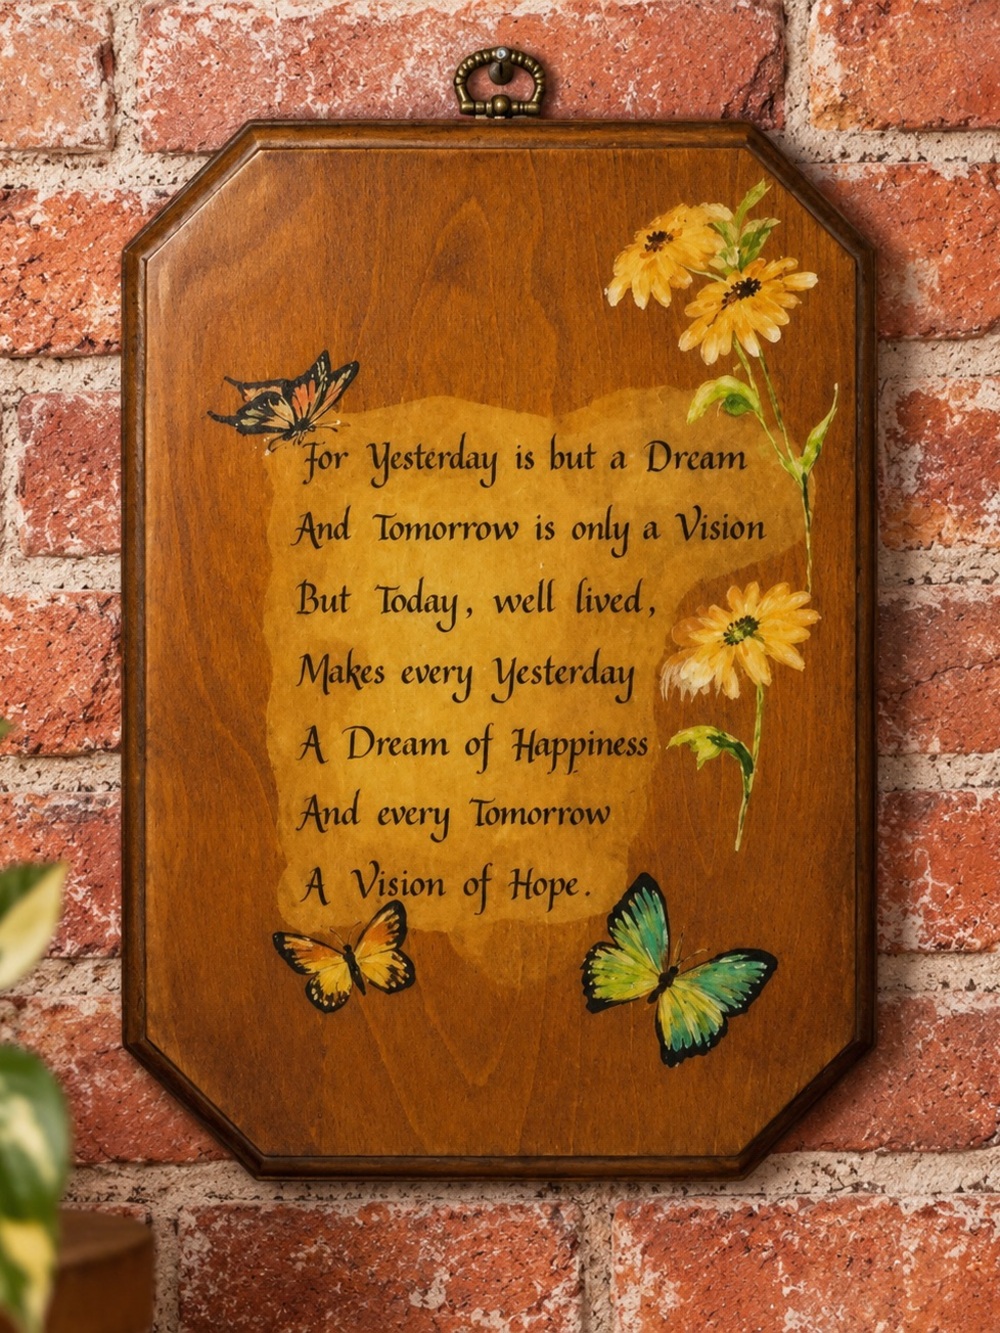 For Yesterday is but a Dream
And Tomorrow is only a Vision
But Today, well lived,
Makes every Yesterday
A Dream of Happiness
And every Tomorrow
A Vision of Hope.